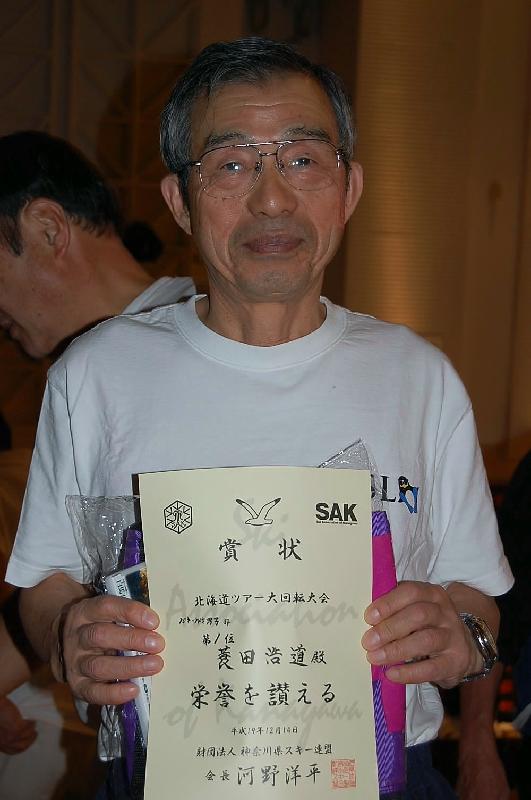 SAK
賞状
北海道ツアー大回転大会
第1位
菱田浩道殿
栄誉を讃える
平成19年12月14日
財団法人 神奈川県スキー連盟
会長 河野洋平
Ski
Association
of Kanagawa